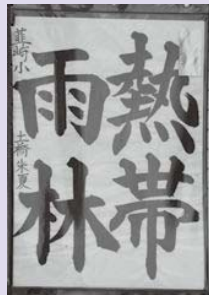 熱帯
雨林
韮崎小
土橋朱夏